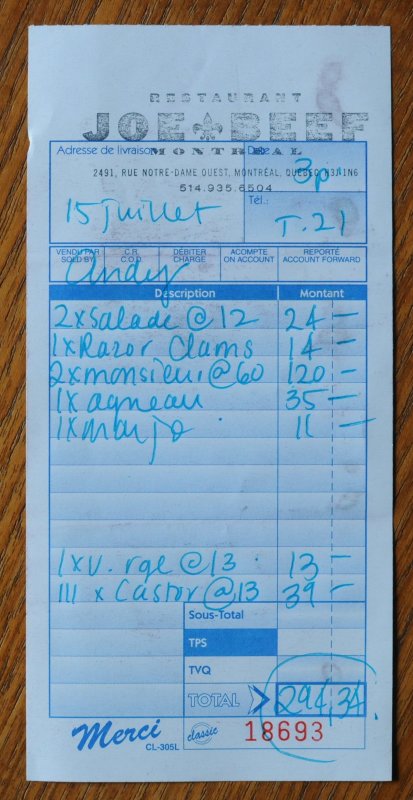 RESTAURANT
JOE BEEF
MONTREAL
Adresse de livraison Date
2491, RUE NOTRE-DAME OUEST, MONTRÉAL, QUÉBEC H3J1N6
3p
514.935.6504
Tél.:
15 juillet T.21
VENDU PAR SOLD BY C.R. C.O.D. DÉBITER CHARGE ACOMPTE ON ACCOUNT REPORTÉ ACCOUNT FORWARD
Andy
Description Montant
2x Salade @ 12 24 —
1x Razor Clams 14 —
2x monsieur @ 60 120 —
1x agneau 35 —
1x marjo 11 —
1x v. rge @ 13 13 —
III x Castor @ 13 39 —
Sous-Total
TPS
TVQ
TOTAL 294,34
Merci classic 18693
CL-305L